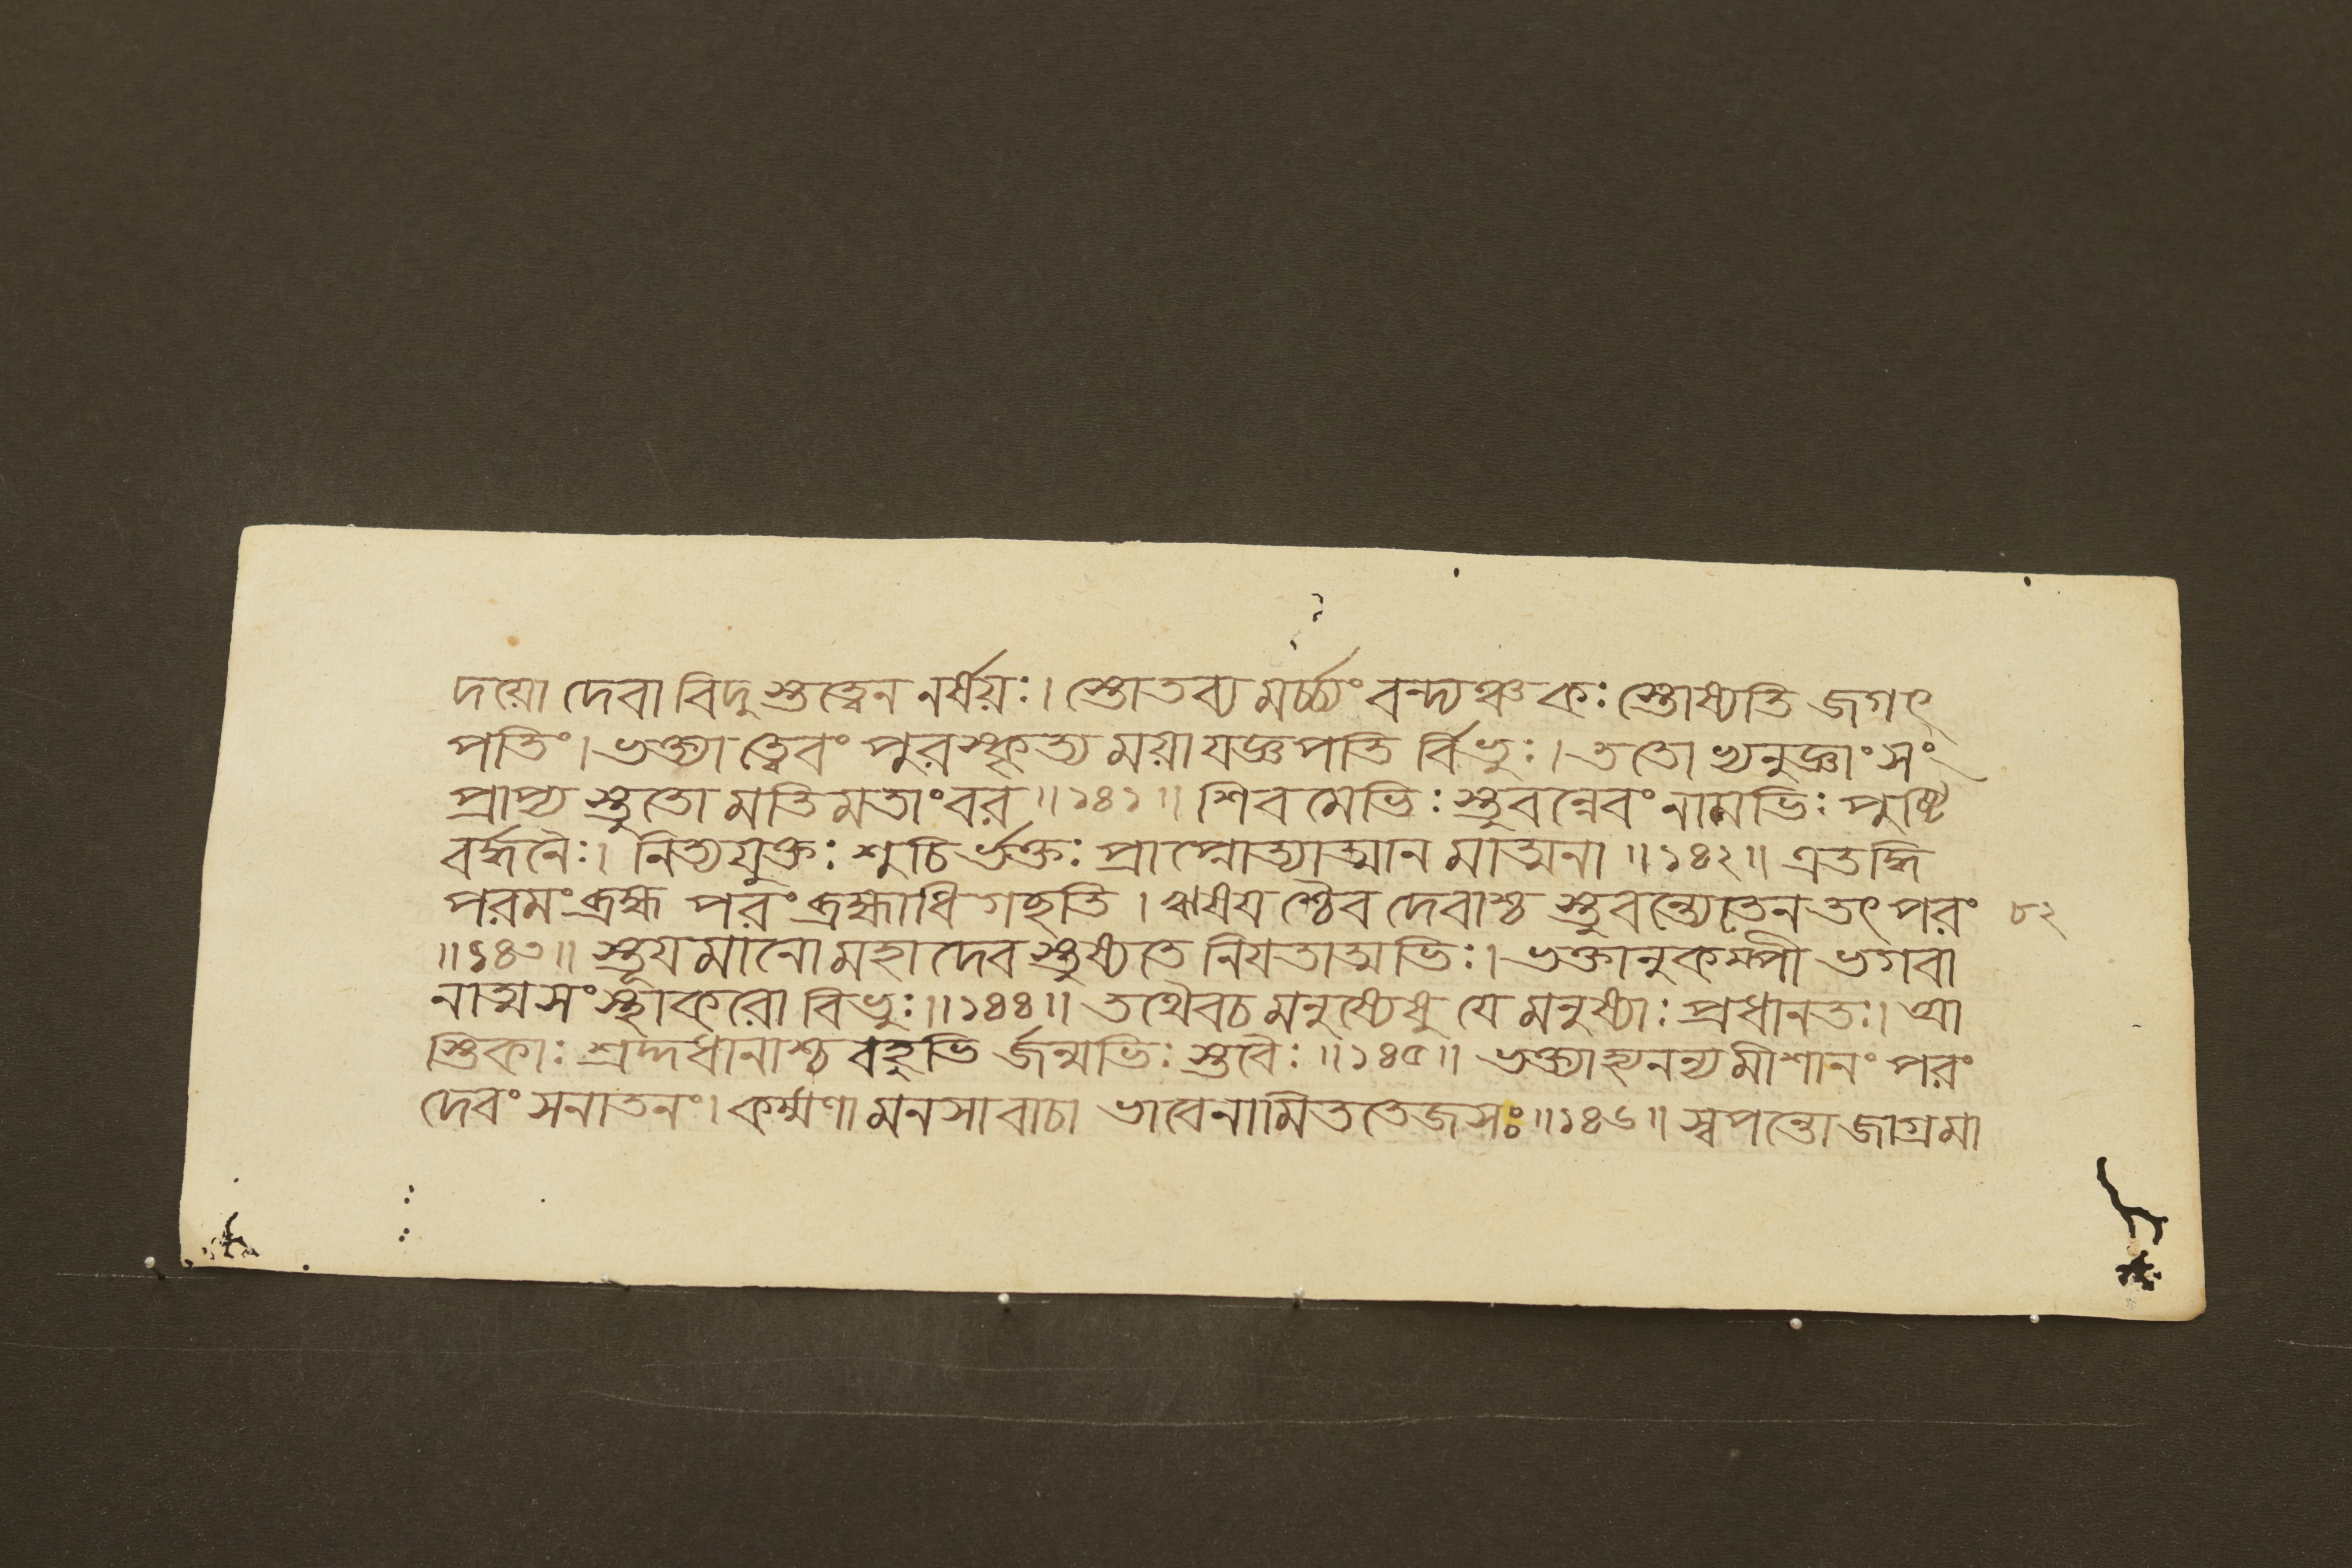 দয়ো দেবা বিদুস্তত্ত্বেন নর্ষয়ঃ। স্তোতব্য মর্চ্চ্যং বন্দ্যঞ্চ কঃ স্তোষ্যতি জগৎ
পতিং। ভক্ত্যা ত্বেবং পুরস্কৃত্য ময়া যজ্ঞপতি র্বিভুঃ। ততোভ্যনুজ্ঞাং সং
প্রাপ্য স্তুতো মতিমতাং বর॥১৪১॥ শিবমেভিঃ স্তুবন্নেবং নামভিঃ পুষ্টি
বর্দ্ধনৈঃ। নিত্যযুক্তঃ শুচি র্ভক্তঃ প্রাপ্নোত্যাত্মান মাত্মনা॥১৪২॥ এতদ্ধি
পরমং ব্রহ্ম পরং ব্রহ্মাধিগচ্ছতি। ঋষয়শ্চৈব দেবাশ্চ স্তুবন্ত্যেতেন তৎপরং ৮২
॥১৪৩॥ স্তূয়মানো মহাদেব স্তুষ্যতে নিয়তাত্মভিঃ। ভক্তানুকম্পী ভগবা
নাত্মসংস্থাকরো বিভুঃ॥১৪৪॥ তথৈবচ মনুষ্যেষু যে মনুষ্যাঃ প্রধানতঃ। আ
স্তিকাঃ শ্রদ্দধানাশ্চ বহুভি র্জন্মভিঃ স্তবৈঃ॥১৪৫॥ ভক্ত্যাহ্যনন্য মীশানং পরং
দেবং সনাতনং। কর্ম্মণা মনসা বাচা ভাবেনামিততেজসঃ॥১৪৬॥ স্বপন্তো জাগ্রমা